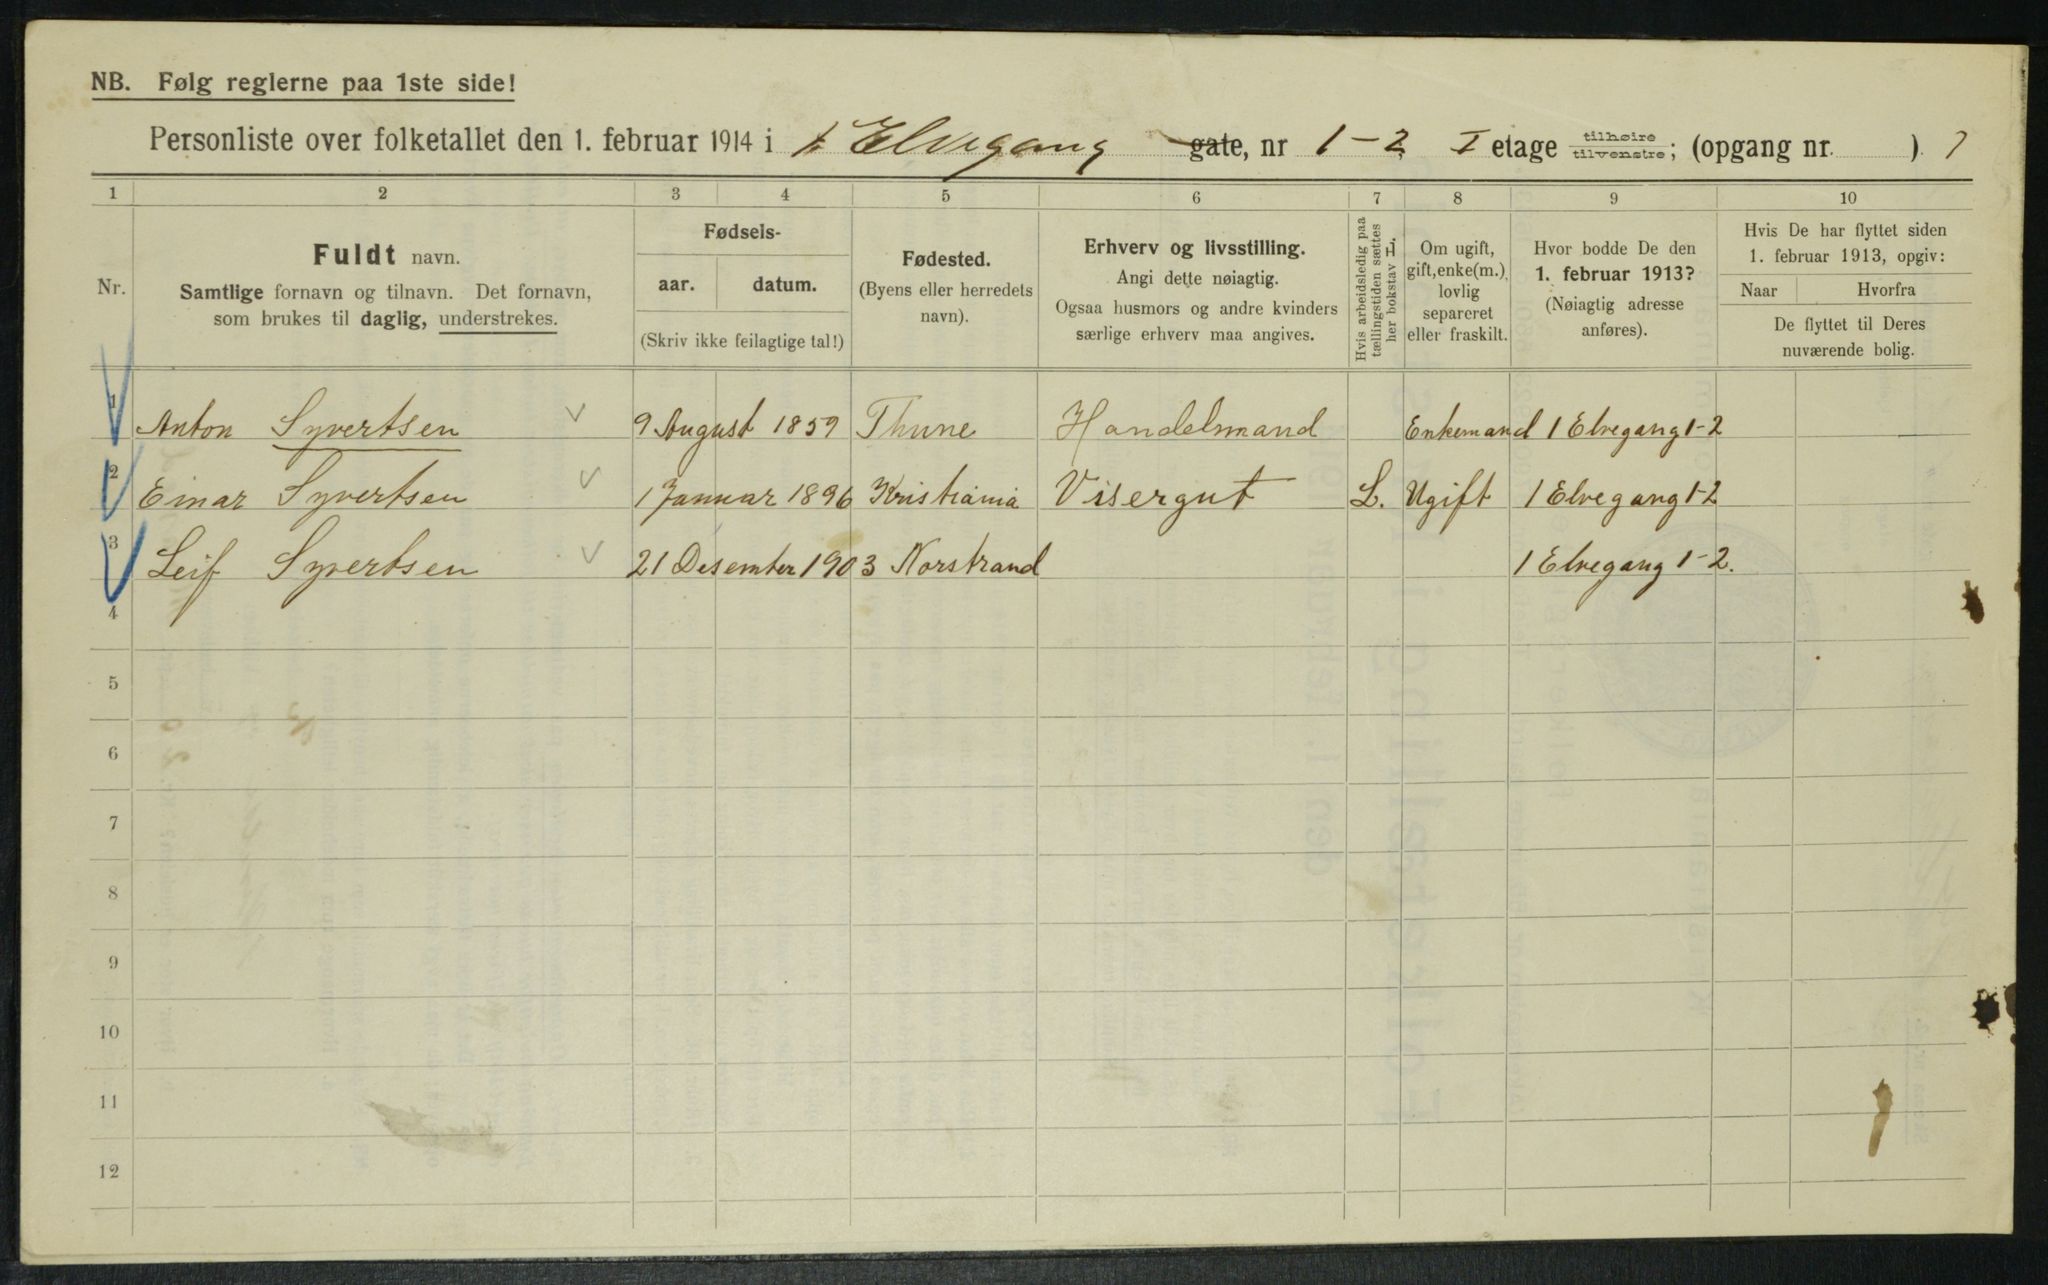 NB. Følg reglerne paa 1ste side!
Personliste over folketallet den 1. februar 1914 i 1 Elvegang gate, nr 1-2 I etage tilhøire tilvenstre; (opgang nr. ) 7
1 2 3 4 5 6 7 8 9 10
Nr.
Fuldt navn.
Samtlige fornavn og tilnavn. Det fornavn,
som brukes til daglig, understrekes.
Fødsels-
aar. datum.
(Skriv ikke feilagtige tal!)
Fødested.
(Byens eller herredets
navn).
Erhverv og livsstilling.
Angi dette nøiagtig.
Ogsaa husmors og andre kvinders
særlige erhverv maa angives.
Hvis arbeidsledig paa
tællingstiden sættes
her bokstav L.
Om ugift,
gift, enke(m.),
lovlig
separeret
eller fraskilt.
Hvor bodde De den
1. februar 1913?
(Nøiagtig adresse
anføres).
Hvis De har flyttet siden
1. februar 1913, opgiv:
Naar Hvorfra
De flyttet til Deres
nuværende bolig.
1 Anton Syvertsen 9 August 1859 Thune Handelmand Enkemand 1 Elvegang 1-2
2 Einar Syvertsen 1 Januar 1896 Kristiania Visergut L. Ugift 1 Elvegang 1-2
3 Leif Syvertsen 21 Desember 1903 Norstrand 1 Elvegang 1-2.
4
5
6
7
8
9
10
11
12